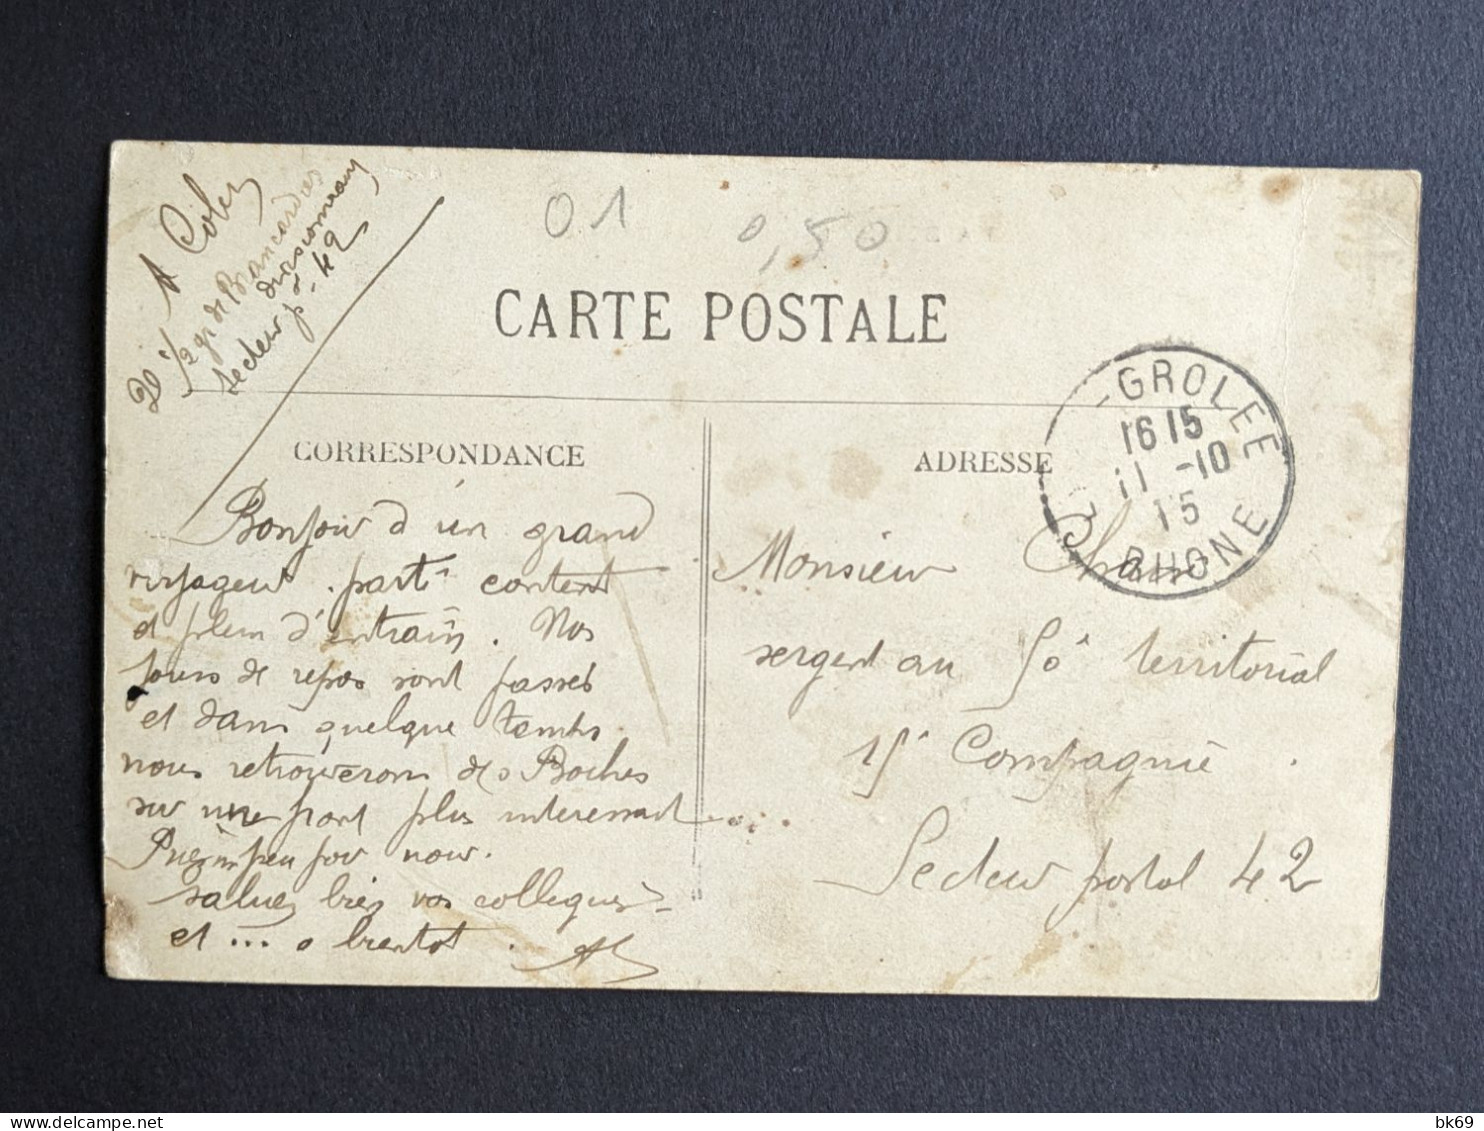 01
0,50
A Col
20e 1/2 gr de Brancardiers
divisionnaires
secteur p. 42
CARTE POSTALE
CORRESPONDANCE
ADRESSE
-GROLEE
16 15
11 -10
15
RHONE
Bonjour d'un grand
voyageur parti content
et plein d'entrain. Nos
jours de repos sont passés
et dans quelque temps
nous retrouverons des Boches
sur une front plus interessant....
un peu pour nous.
saluez bien vos collegues
et ... a bientot.
Monsieur
sergent au territorial
Compagnie
Secteur postal 42
bk69